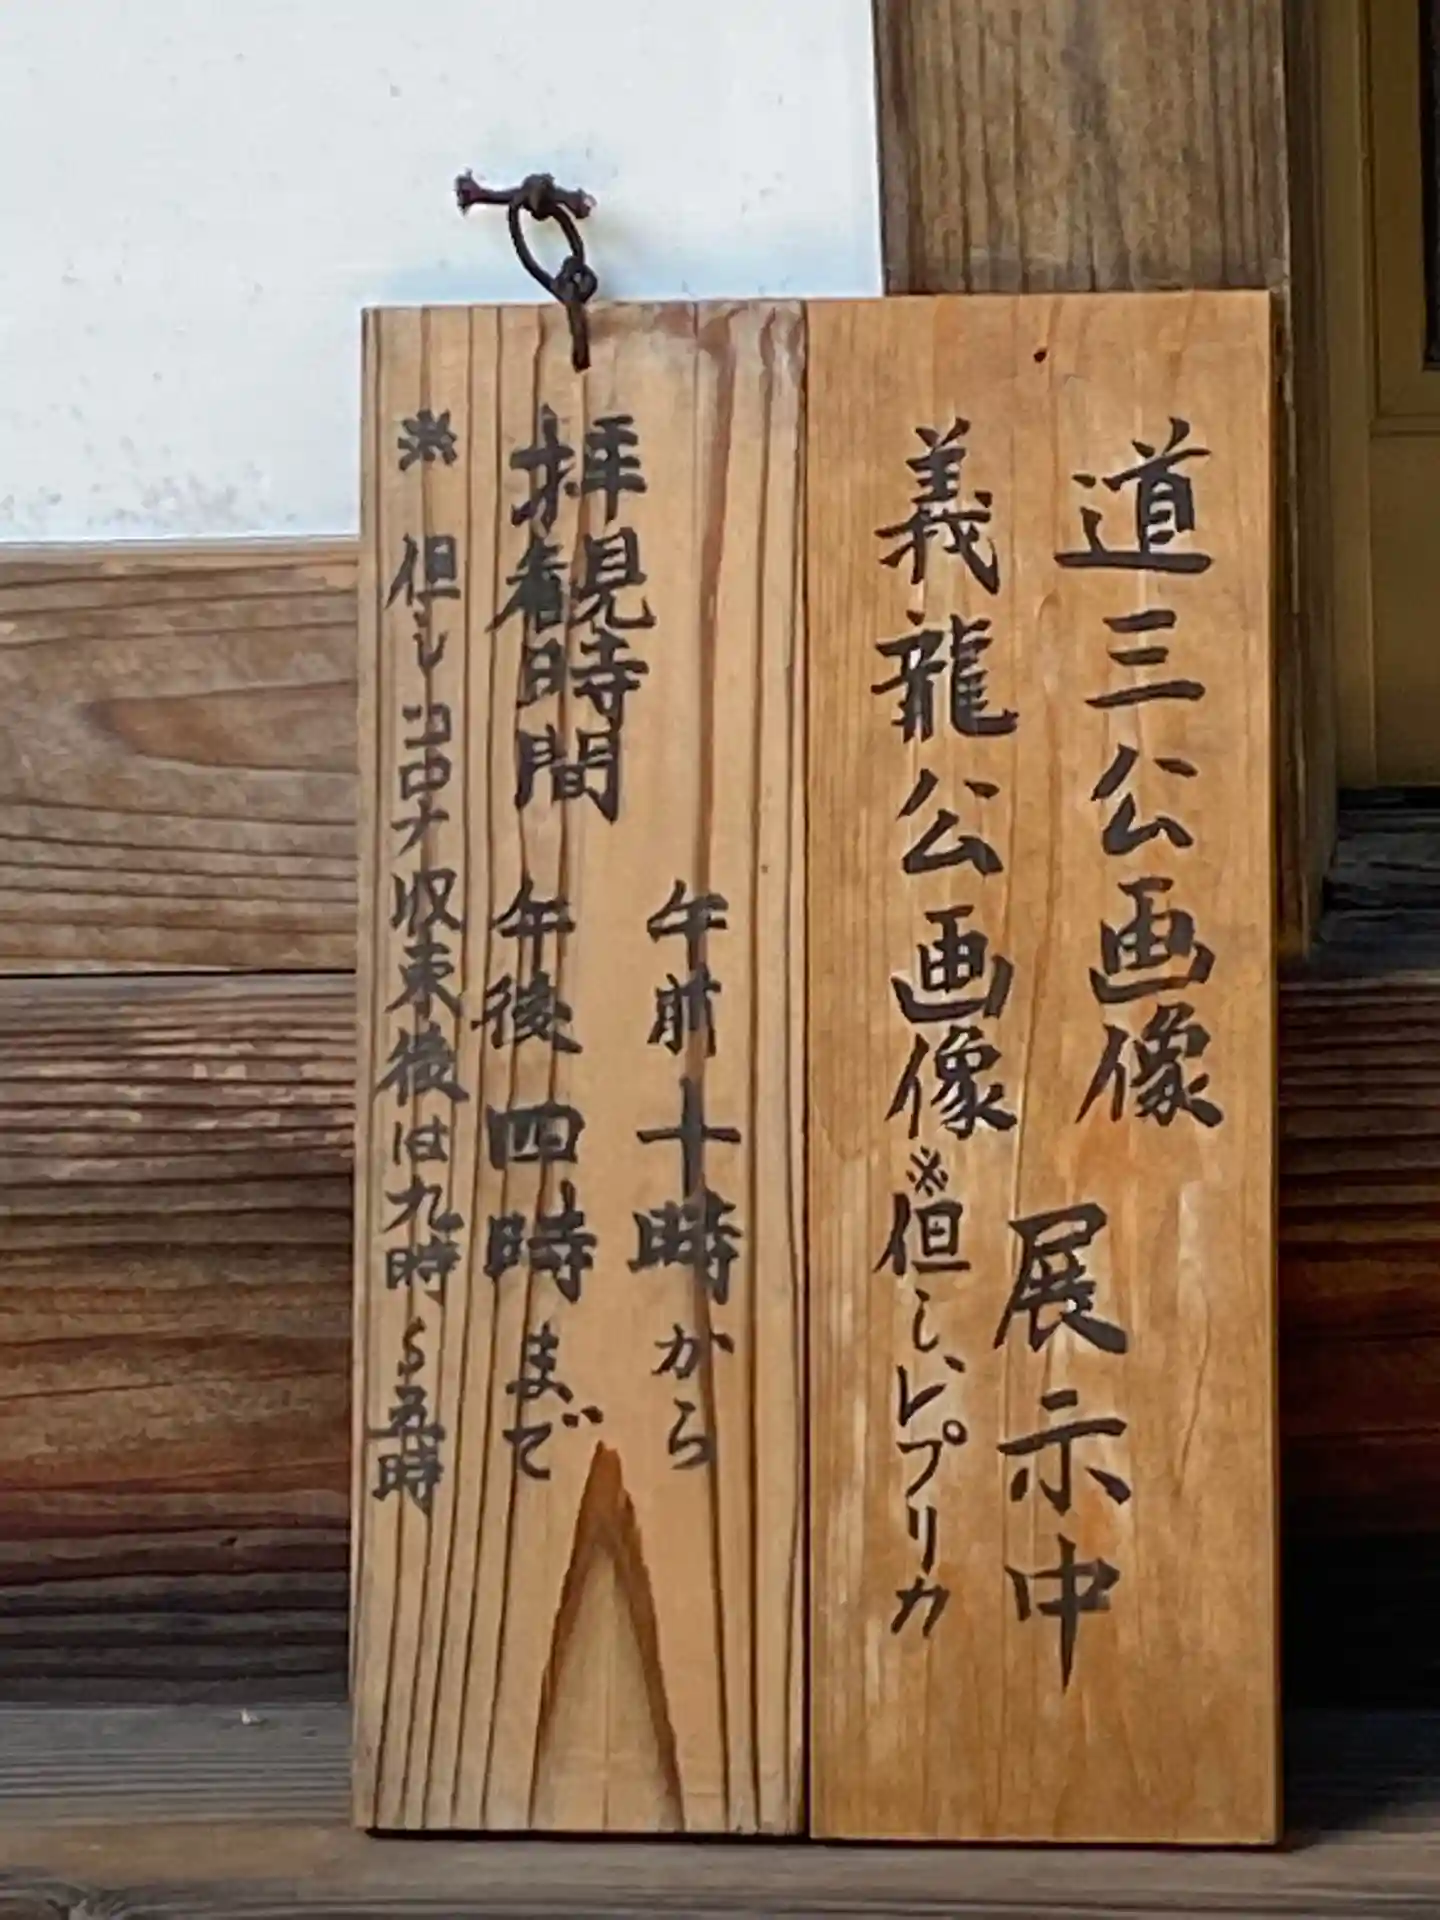 道三公画像
義龍公画像※但し、レプリカ
展示中
拝観時間
午前十時から
午後四時まで
※但しコロナ収束後は九時〜五時